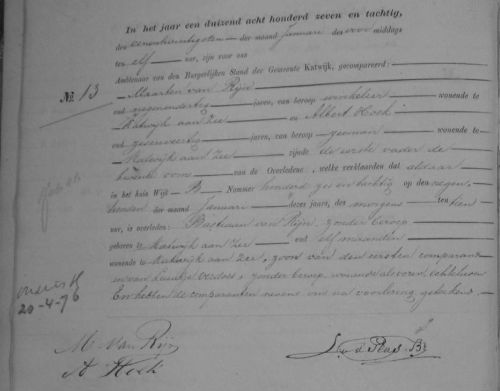 In het jaar een duizend acht honderd zeven en tachtig,
den eenentwintigsten der maand Januari des voor middags
ten elf ure, zijn voor ons
Ambtenaar van den Burgerlijken Stand der Gemeente Katwijk, gecompareerd:
No. 13 Maarten van Rijn
oud jaren, van beroep winkelier wonende te
Katwijk aan Zee en Albert Hoek
oud jaren, van beroep zeeman wonende te
Katwijk aan Zee zijnde de eerste vader de
tweede oom van de Overledene, welke verklaarden dat aldaar
in het huis Wijk B. Nummer honderd zes en tachtig op den negen
tienden der maand Januari dezes jaars, des morgens ten tien
ure, is overleden: Bastiaan van Rijn, zonder beroep
geboren te Katwijk aan Zee oud elf maanden
wonende te Katwijk aan Zee, zoon van den eersten comparant
en van zonder beroep, wonende als voren, echtelieden
En hebben de comparanten nevens ons na voorlezing, geteekend.
20-4-76
M. van Rijn
A Hoek